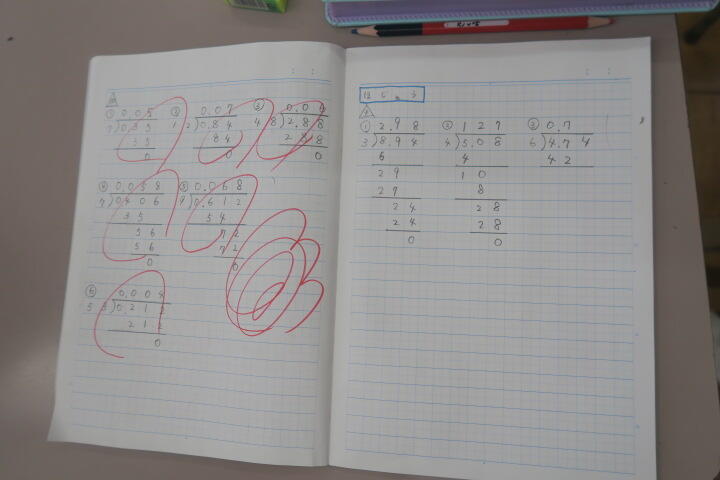 ① 0.05
7)0.35
35
0
② 0.07
12)0.84
84
0
③ 0.06
48)2.88
288
0
④ 0.058
7)0.406
35
56
56
0
⑤ 0.068
9)0.612
54
72
72
0
⑥ 0.004
53)0.212
212
0
① 2.98
3)8.94
6
29
27
24
24
0
② 127
4)5.08
4
10
8
28
28
0
③ 0.7
6)4.74
42